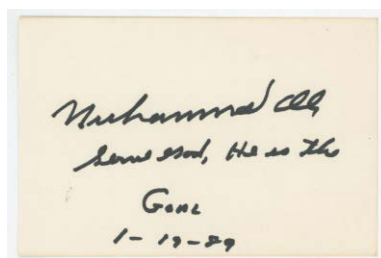 Muhammad Ali
Serve God, He is the
Goal
1-19-89